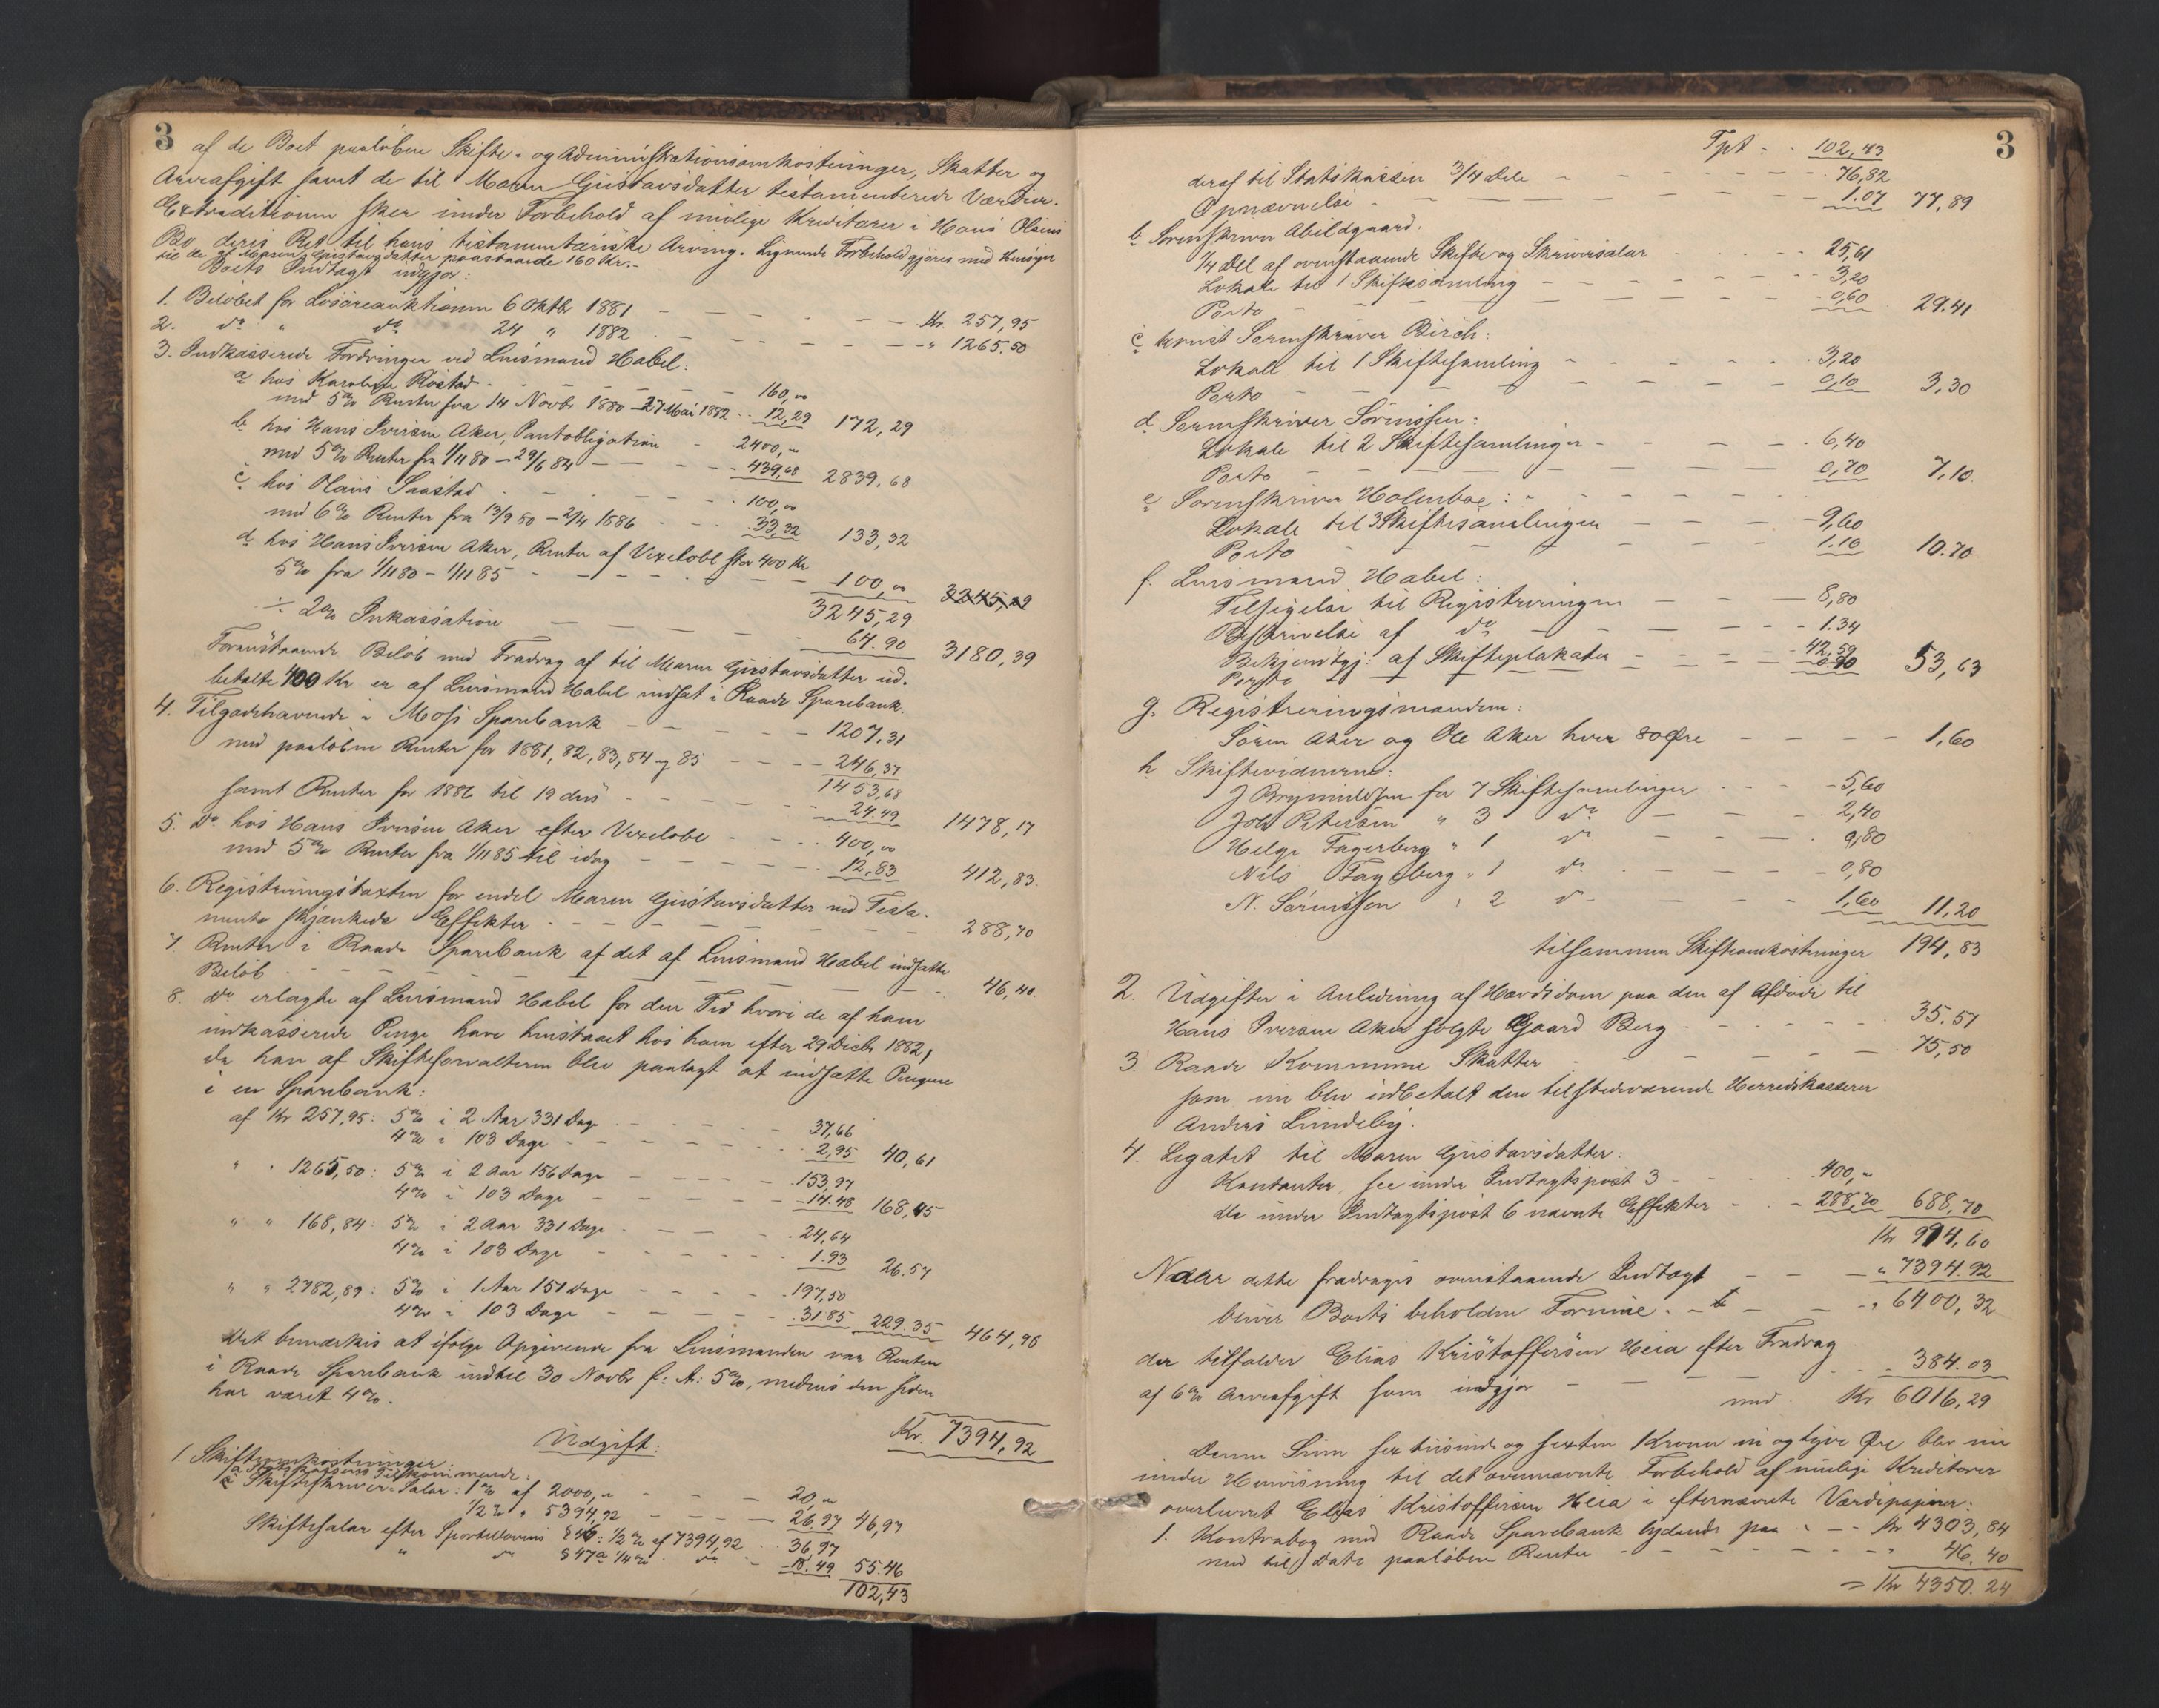 3
af de Boet paaløbne Skifte- og Administrationsomkostninger, Skatter og
Arveafgift samt de til Maren Gustavsdatter testamenterede Værdier.
Extraditionen sker under Forbehold af mulige Kreditorer i Hans Olsens
Bo deres Ret til hans testamentariske Arving. Lignende Forbehold gjøres med Hensyn
til de af Maren Gustavsdatter paastaaede 160 Kr.-
Boets Indtægt udgjør:
1. Beløbet for Løsøreauktionen 6 Oktbr 1881 — — — Kr. 257,95
2. do " do 24 " 1882 — — — " 1265.50
3. Indkasserede Fordringer ved Lensmand Habel:
a hos Karoline Rostad - — — 160,00
med 5% Renter fra 14 Novbr 1880 - 27 Mai 1882 - 12,29 172,29
b. hos Hans Iversen Aker, Pantobligation - 2400,-
med 5% Renter fra 1/11 80 - 29/6 84 — — 439,68 2839.68
c. hos Olaus Saastad - — — 100,00
med 6% Renter fra 13/9 80 - 2/4 1886 - - 33,32 133,32
d. hos Hans Iversen Aker, Renter af Vexelobl stor 400 Kr
5% fra 1/11 80 - 1/11 85 - — — 100,00 3245,29
3245,29
÷ 2% Inkassation — — — 64.90 3180,39
Foranstaaende Beløb med Fradrag af til Maren Gustavsdatter ud-
betalte 400 Kr er af Lensmand Habel indsat i Raade Sparebank.
4. Tilgodehavende i Moss Sparebank — — — 1207.31
med paaløbne Renter for 1881, 82, 83, 84 og 85 — — 246,37
1453,68
samt Renter for 1886 til 19 ds - — — 24.49 1478,17
5. Do hos Hans Iversen Aker efter Vexelobl - — 400,00
med 5% Renter fra 1/11 85 til idag — — — 12,83 412,83.
6. Registreringstaxten for endel Maren Gustavsdatter ved Testa-
mente skjænkede Effekter - — — — 288,70
7. Renter i Raade Sparebank af det af Lensmand Habel indsatte
Beløb — — — — 46,40
8. do erlagte af Lensmand Habel for den Tid hvori de af ham
indkasserede Penge have henstaaet hos ham efter 29 Decbr 1882,
da han af Skifteforvalteren blev paalagt at indsætte Pengene
i en Sparebank:
af Kr 257,95: 5% i 2 Aar 331 Dage - — — 37,66
4% i 103 Dage — — — 2,95 40,61
" " 1265,50: 5% i 2 Aar 156 Dage — — — 153,97
4% i 103 Dage — — — 14.48 168,45
" " 168,84: 5% i 2 Aar 331 Dage — — — 24,64
4% i 103 Dage — — — 1.93 26.57
" " 2782,89: 5% i 1 Aar 151 Dage — — — 197,50
4% i 103 Dage — — — 31.85 229.35 464,98
Det bemærkes at ifølge Opgivende fra Lensmanden var Renten
i Raade Sparebank indtil 30 Novbr f: A: 5%, medens den siden
har været 4%.
Kr. 7394,92
Udgift:
1. Skifteomkostninger:
a Statskassens Tilkommende:
Skifteskriver-Salær: 1% af 2000,- — — 20,-
1/2% " 5394,92 — — — 26.97 46,97
Skiftesalær efter Sportellovens § 46: 1/2% af 7394,92 - 36,97
" do § 47a 1/4% do - 18.49 55.46
102,43
3
Tpt - - 102,43
deraf til Statskassen 3/4 Dele — — — 76,82
Opnævnelse — — — 1.07 77,89
b Sorenskriver Abildgaard.
1/4 Del af ovenstaaende Skifte- og Skriversalær - - 25,61
Lokale til 1 Skiftesamling — — — 3,20
Porto — — — 0,60 29.41
c konst Sorenskriver Birch:
Lokale til 1 Skiftesamling - - - 3,20
Porto — — — 0,10 3,30
d Sorenskriver Sørenssen:
Lokale til 2 Skiftesamlinger — — — 6,40
Porto — — — 0,70 7,10.
e Sorenskriver Holmboe: - — —
Lokale til 3 Skiftesamlinger — — — 9,60
Porto — — — 1.10 10.70
f. Lensmand Habel:
Tilsigelse til Registreringen — — — 8,80
Beskrivelse af do — — — 1.34
Bekjendtgj: af Skifteplakater — — — 42,59
Porto — — — 0,90 53,63
g. Registreringsmændene:
Søren Aker og Ole Aker hver 80 Øre — — — 1,60
h Skiftevidnerne:
J Brynildsen for 7 Skiftesamlinger - - - 5,60
Joh Petersen " 3 do — — 2,40
Helge Fagerberg " 1 do — — 0,80
Nils Fagerberg " 1 do - — — 0,80
N. Sørenssen " 2 do — — — 1,60 11,20
tilsammen Skifteomkostninger 194,83
2. Udgifter i Anledning af Hævdsdom paa den af Afdøde til
Hans Iversen Aker solgte Gaard Berg - — — 35.57
3. Raade Kommune Skatter - — — 75,50
som nu blev udbetalt den tilstedeværende Herredskasserer
Anders Lundeby.
4. Legatet til Maren Gustavsdatter:
Kontanter, see under Indtægtspost 3 - - 400,-
de under Indtægtspost 6 nævnte Effekter - - 288,70 688,70
Kr 994,60
Naar dette fradrages ovenstaaende Indtægt — — — " 7394.92
bliver Boets beholdne Formue. - — — " 6400,32
der tilfalder Elias Kristoffersen Heia efter Fradrag
af 6% Arveafgift som udgjør — — — 384.03
med Kr 6016,29
Denne Sum sex tusinde og sexten Kroner ni og tyve Øre blev nu
under Henvisning til det ovennævnte Forbehold af mulige Kreditorer
overleveret Elias Kristoffersen Heia i efternævnte Værdipapirer:
1. Kontrabog med Raade Sparebank lydende paa - — - Kr 4303,84
med til Dato paaløbne Renter — — — " 46.40
= Kr 4350.24